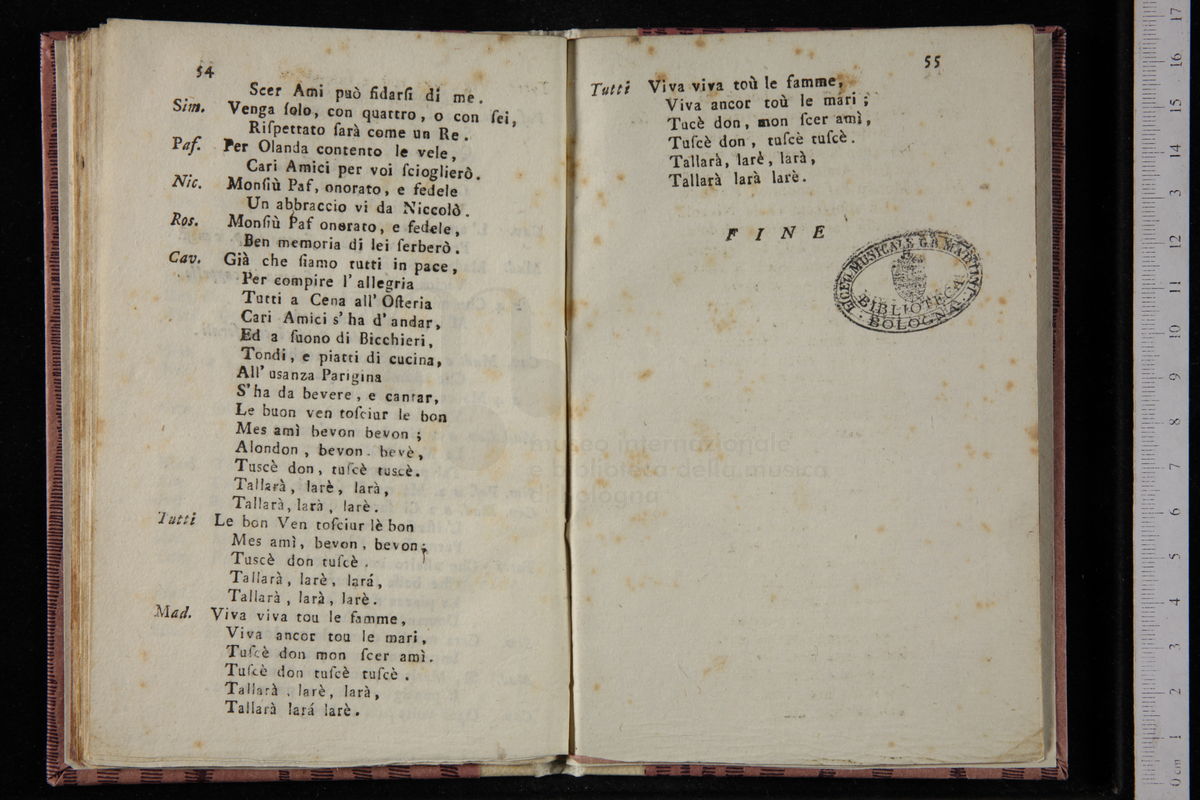 54
Scer Ami può fidarſi di me.
Sim. Venga ſolo, con quattro, o con ſei,
Riſpettato ſarà come un Re.
Paf. Per Olanda contento le vele,
Cari Amici per voi ſcioglierò.
Nic. Monſiù Paf, onorato, e fedele
Un abbraccio vi da Niccolò.
Ros. Monſiù Paf onorato, e fedele,
Ben memoria di lei ſerberò.
Cav. Già che ſiamo tutti in pace,
Per compire l' allegria
Tutti a Cena all' Oſteria
Cari Amici s' ha d' andar,
Ed a ſuono di Bicchieri,
Tondi, e piatti di cucina,
All' usanza Parigina
S' ha da bevere, e cantar,
Le buon ven toſciur le bon
Mes amì bevon bevon;
Alondon, bevon. bevè,
Tuscè don, tuſcè tuscè.
Tallarà, larè, larà,
Tallarà, larà, larè.
Tutti Le bon Ven toſciur lè bon
Mes amì, bevon, bevon;
Tuscè don tuſcè.
Tallarà, larè, lará,
Tallarà, larà, larè.
Mad. Viva viva tou le famme,
Viva ancor tou le mari,
Tuſcè don mon ſcer amì.
Tuſcè don tuſcè tuſcè.
Tallarà. larè, larà,
Tallarà lará larè.
55
Tutti Viva viva toù le famme,
Viva ancor toù le mari;
Tucè don, mon ſcer amì,
Tuſcè don, tuſcè tuſcè.
Tallarà, larè, larà,
Tallarà larà larè.
FINE
LICEO MUSICALE G.B. MARTINI
BIBLIOTECA
BOLOGNA
museo internazionale
e biblioteca della musica
di bologna
0 cm 1 2 3 4 5 6 7 8 9 10 11 12 13 14 15 16 17